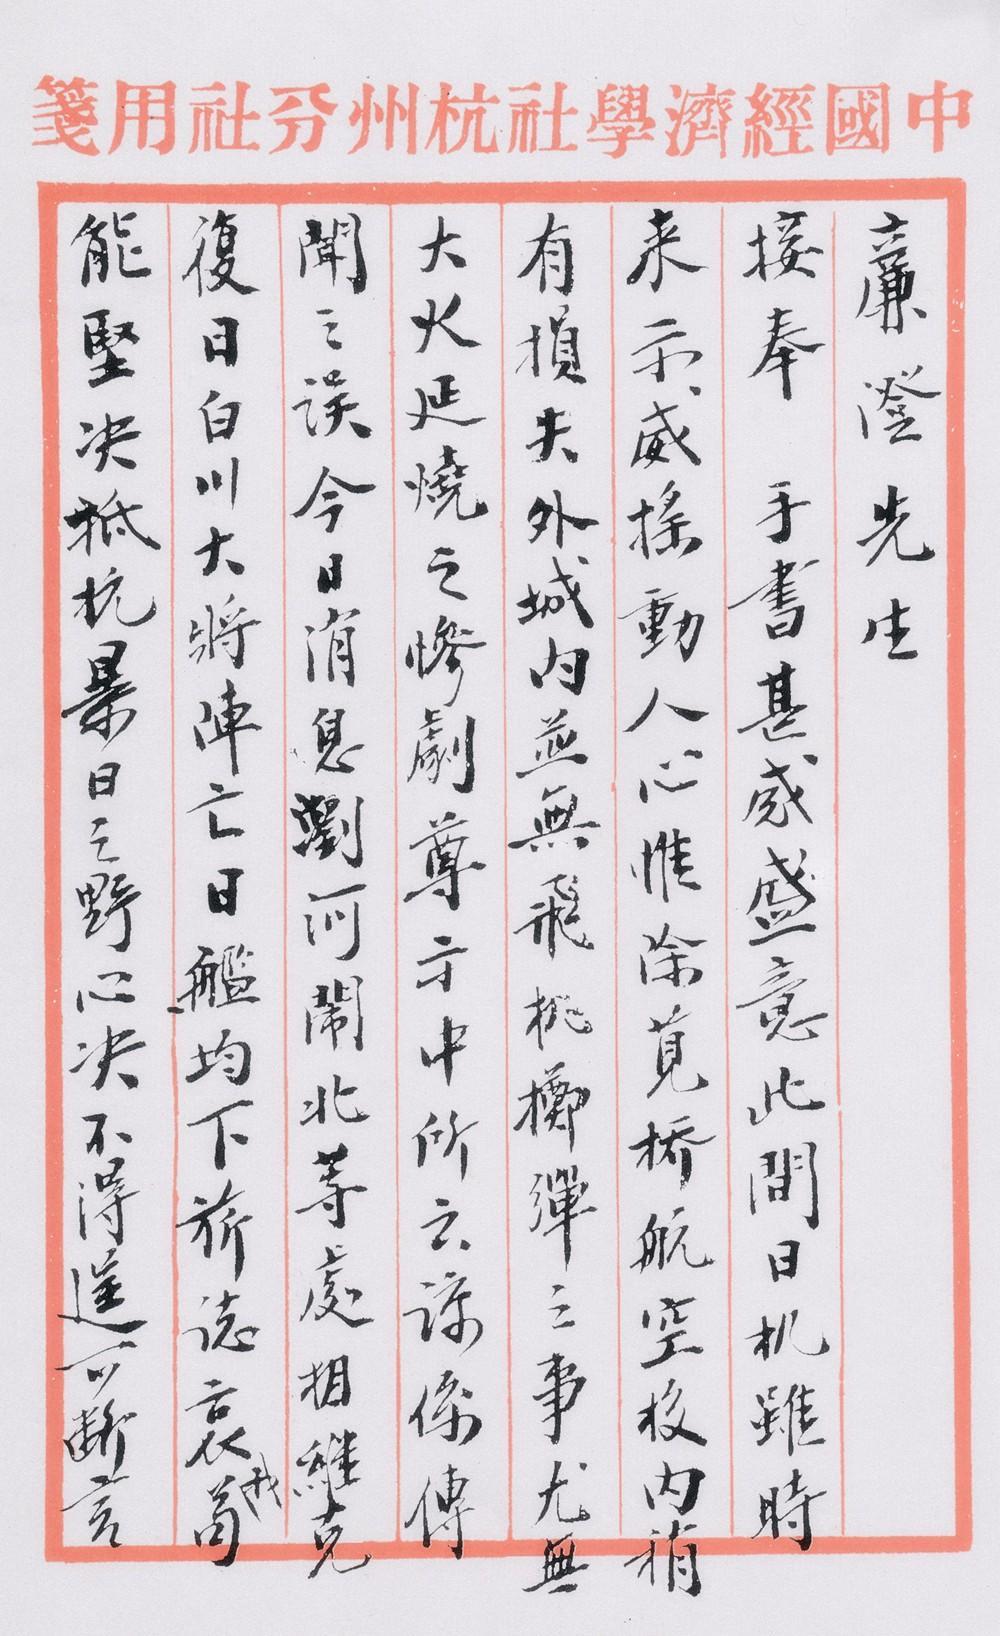 中國經濟學社杭州分社用箋
廉澄先生
接奉　手書甚感盛意此間日机雖時
来示威搖動人心惟除莧橋航空校内稍
有損失外城内並無飛机擲彈之事尤無
大火延燒之慘劇尊示中所云諒係傳
聞之误今日消息瀏河閘北等處相繼克
復日白川大將陣亡日艦均下旂誌哀苟我
能堅决抵抗暴日之野心决不得逞可断言